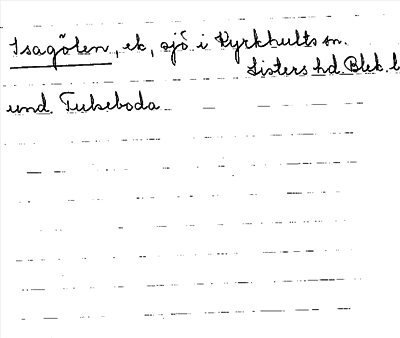 Isagölen, ek, sjö i Kyrkhults sn.
Listers hd. Blek. l
und. Tulseboda